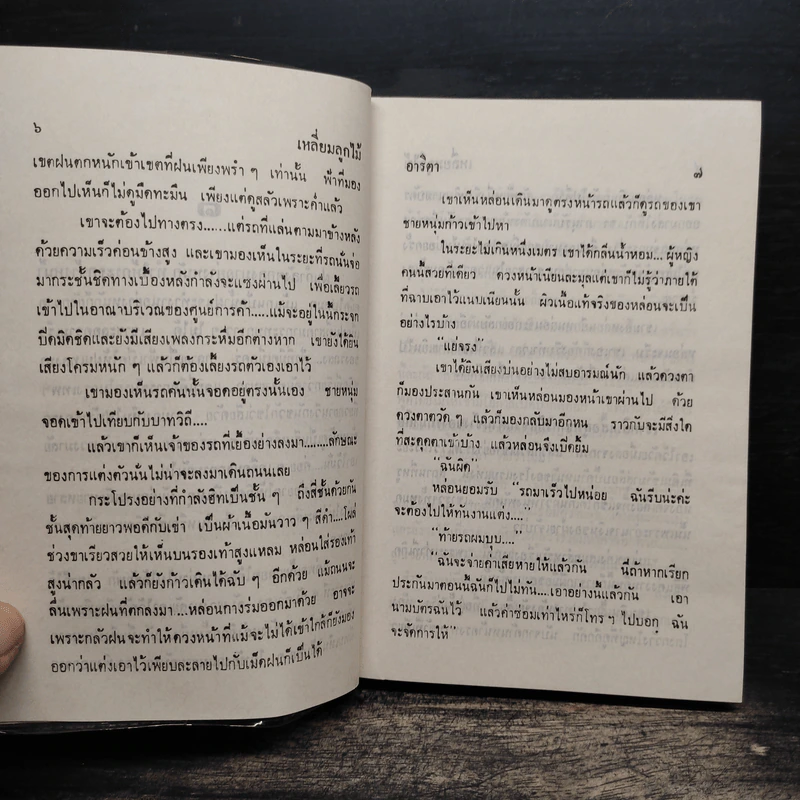 ๖
เหลี่ยมลูกไม้
เขตฝนตกหนักเข้าเขตที่ฝนเพียงพรำ ๆ เท่านั้น ฟ้าที่มอง
ออกไปเห็นก็ไม่ดูมืดทะมึน เพียงแต่ดูสลัวเพราะค่ำแล้ว
เขาจะต้องไปทางตรง......แต่รถที่แล่นตามมาข้างหลัง
ด้วยความเร็วค่อนข้างสูง และเขามองเห็นในระยะที่รถนั่นจ่อ
มากระชั้นชิดทางเบื้องหลังกำลังจะแซงผ่านไป เพื่อเลี้ยวรถ
เข้าไปในอาณาบริเวณของศูนย์การค้า.....แม้จะอยู่ในนี้กระจก
ปิดมิดชิดและยังมีเสียงเพลงกระหึ่มอีกต่างหาก เขายังได้ยิน
เสียงโครมหนัก ๆ แล้วก็ต้องเลี้ยงรถตัวเองเอาไว้
เขามองเห็นรถคันนั้นจอดอยู่ตรงนั้นเอง ชายหนุ่ม
จอดเข้าไปเทียบกับบาทวิถี....
แล้วเขาก็เห็นเจ้าของรถที่เยื้องย่างลงมา........ลักษณะ
ของการแต่งตัวนั่นไม่น่าจะลงมาเดินถนนเลย
กระโปรงอย่างที่กำลังฮิทเป็นชั้น ๆ ถึงสี่ชั้นด้วยกัน
ชั้นสุดท้ายยาวพอดีกับเข่า เป็นผ้าเนื้อมันวาว ๆ สีดำ....โผล่
ช่วงขาเรียวสวยให้เห็นบนรองเท้าสูงแหลม หล่อนใส่รองเท้า
สูงน่ากลัว แล้วก็ยังก้าวเดินได้ฉับ ๆ อีกด้วย แม้ถนนจะ
ลื่นเพราะฝนที่ตกลงมา...หล่อนกางร่มออกมาด้วย อาจจะ
เพราะกลัวฝนจะทำให้ดวงหน้าที่แม้จะไม่ได้เข้าใกล้ก็ยังมอง
ออกว่าแต่งเอาไว้เพียบละลายไปกับเม็ดฝนก็เป็นได้
อาริตา
๗
เขาเห็นหล่อนเดินมาดูตรงหน้ารถแล้วก็ดูรถของเขา
ชายหนุ่มก้าวเข้าไปหา
ในระยะไม่เกินหนึ่งเมตร เขาได้กลิ่นน้ำหอม... ผู้หญิง
คนนี้สวยทีเดียว ดวงหน้าเนียนละมุลแต่เขาก็ไม่รู้ว่าภายใต้
ที่ฉาบเอาไว้แนบเนียนนั้น ผิวเนื้อแท้จริงของหล่อนจะเป็น
อย่างไรบ้าง
“แย่จริง”
เขาได้ยินเสียงบ่นอย่างไม่สบอารมณ์นัก แล้วดวงตา
ก็มองประสานกัน เขาเห็นหล่อนมองหน้าเขาผ่านไป ด้วย
ดวงตาตวัด ๆ แล้วก็มองกลับมาอีกหน ราวกับจะมีสิ่งใด
ที่สะดุดตาเข้าบ้าง แล้วหล่อนจึงเปิดยิ้ม
“ฉันผิด”
หล่อนยอมรับ “รถมาเร็วไปหน่อย ฉันรีบน่ะค่ะ
จะต้องไปให้ทันงานแต่ง....”
“ท้ายรถผมบุบ....”
“ฉันจะจ่ายค่าเสียหายให้แล้วกัน นี่ถ้าหากเรียก
ประกันมาตอนนี้ฉันก็ไปไม่ทัน....เอาอย่างนี้แล้วกัน เอา
นามบัตรฉันไว้ แล้วค่าซ่อมเท่าไหร่ก็โทร ฯ ไปบอก ฉัน
จะจัดการให้”